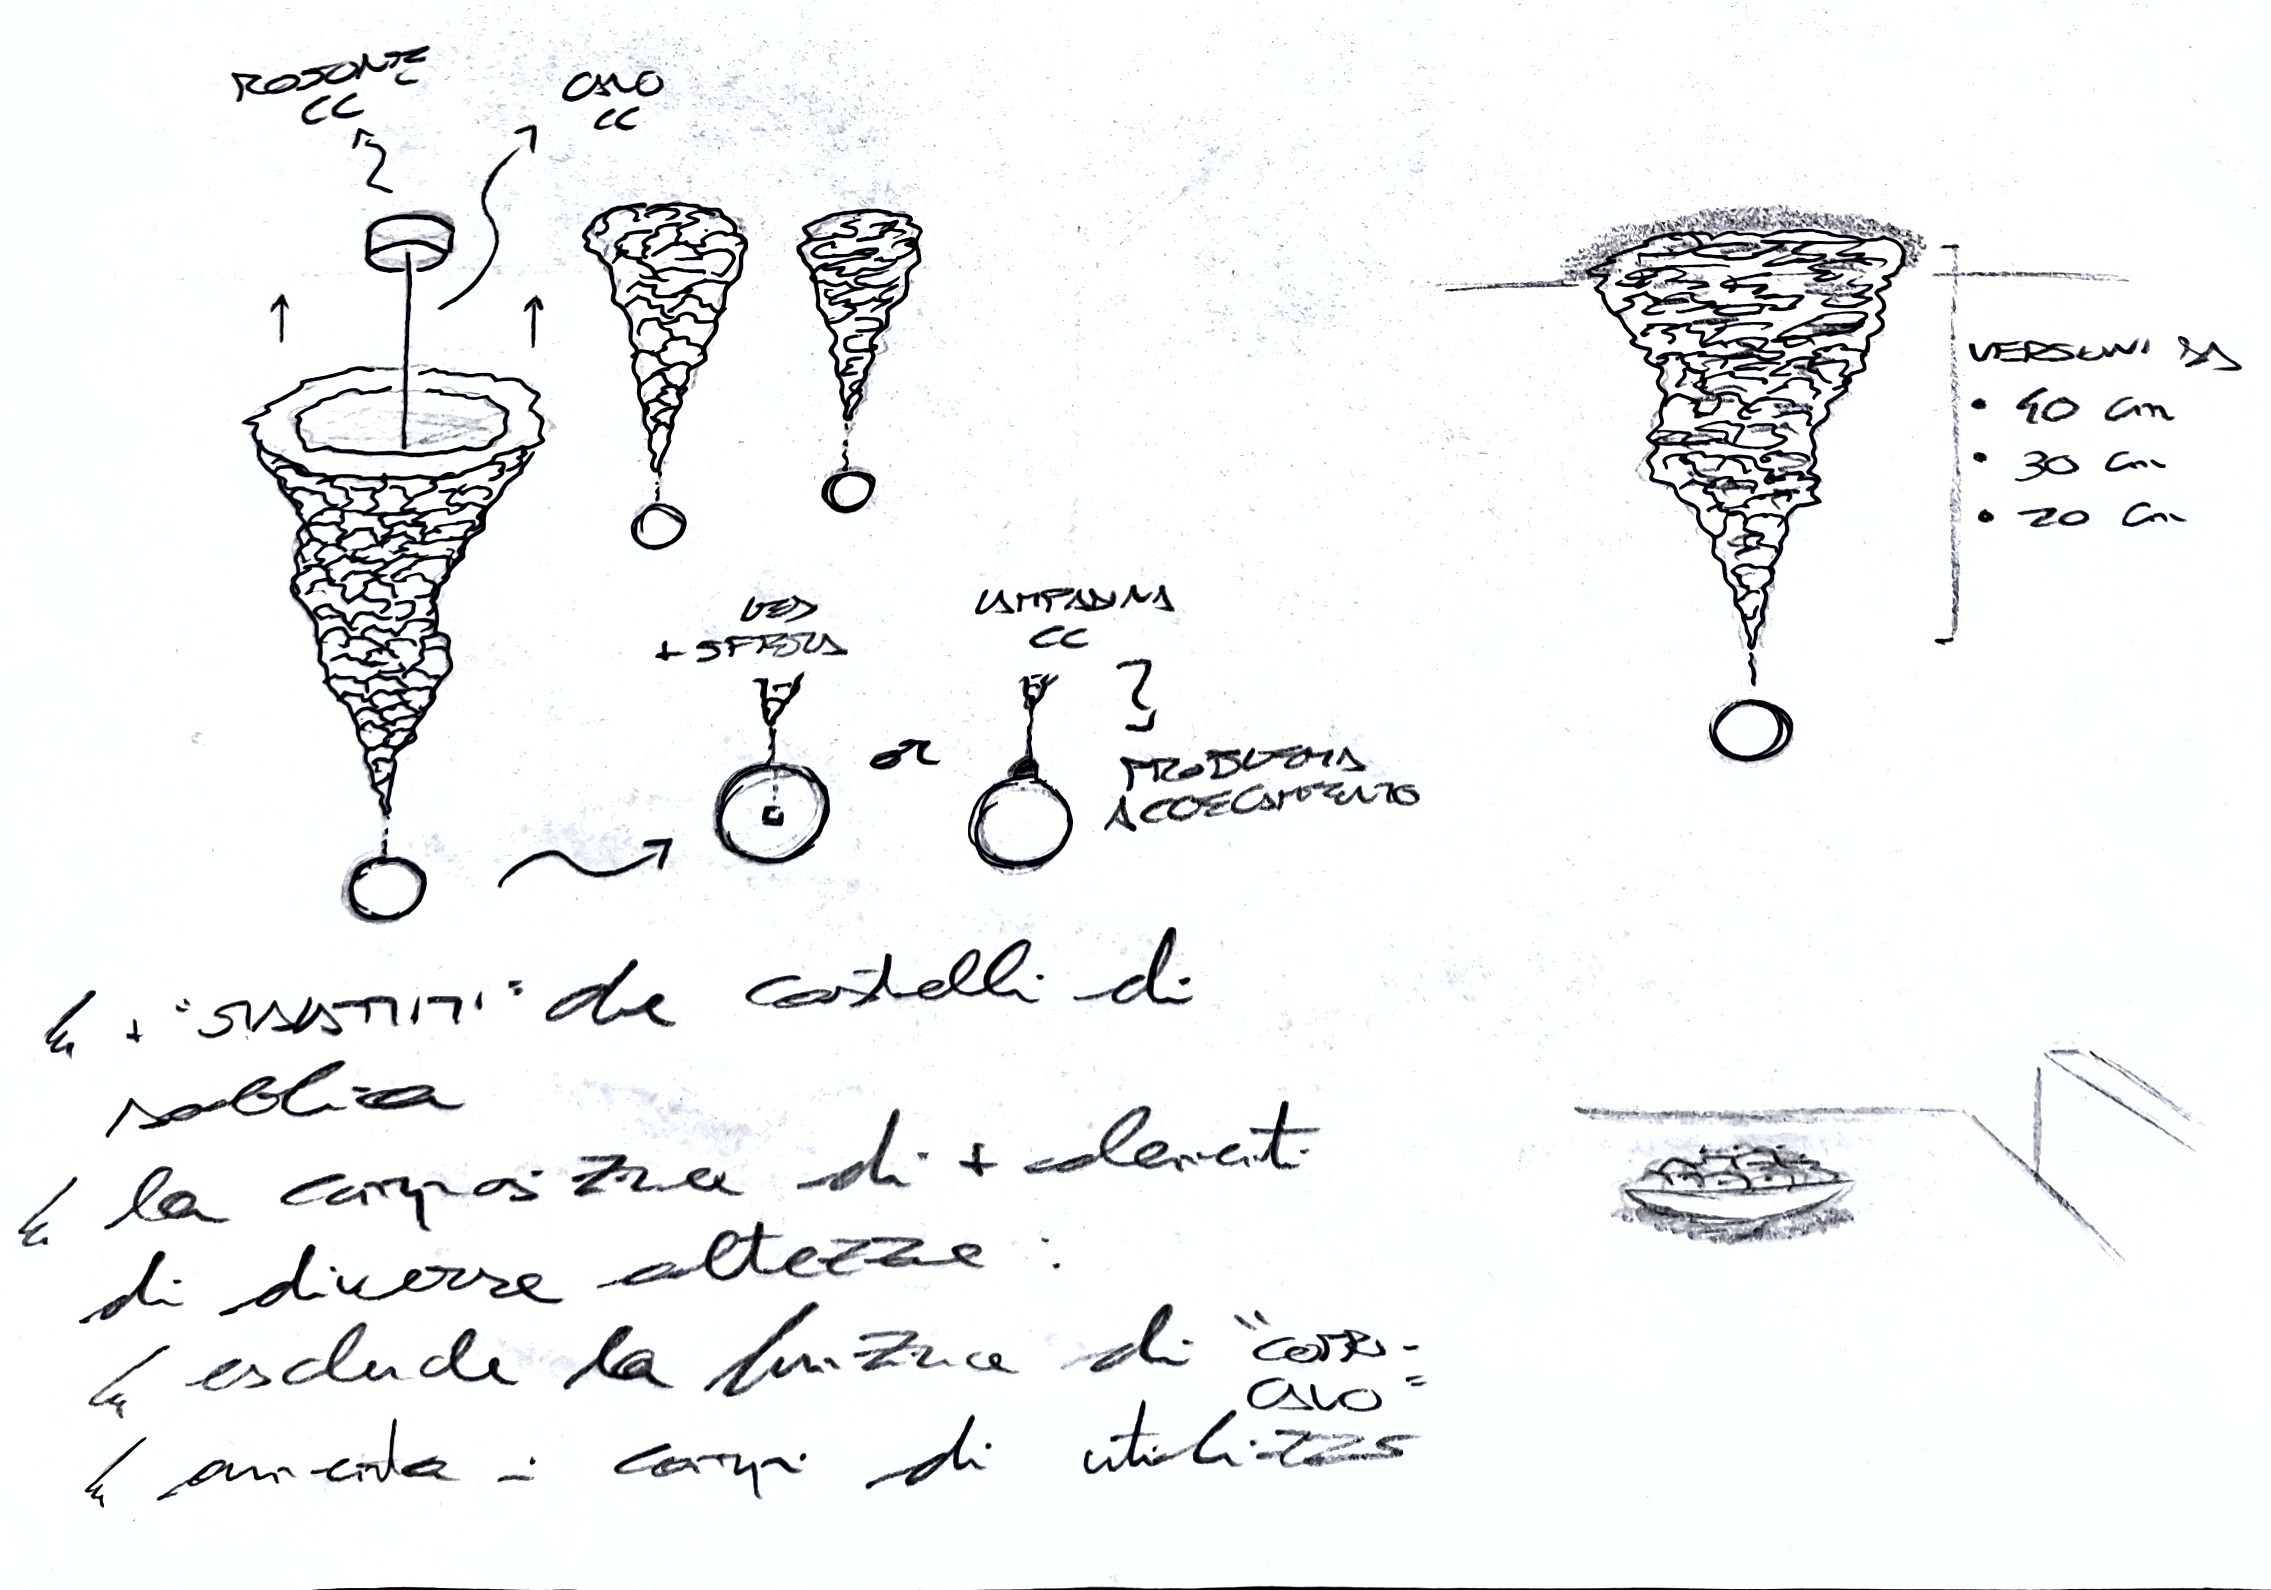 ROSONE
CC
CAVO
CC
VERSIONI DA
• 40 cm
• 30 cm
• 20 cm
LED
+ SFERA
or
LAMPADINA
CC
PROBLEMA
ACCECAMENTO
+ "SVASATI" che castelli di
sabbia
la composizione di + elementi
di diverse altezze :
esclude la funzione di "COPRI-
CAVO"
aumenta i campi di utilizzo